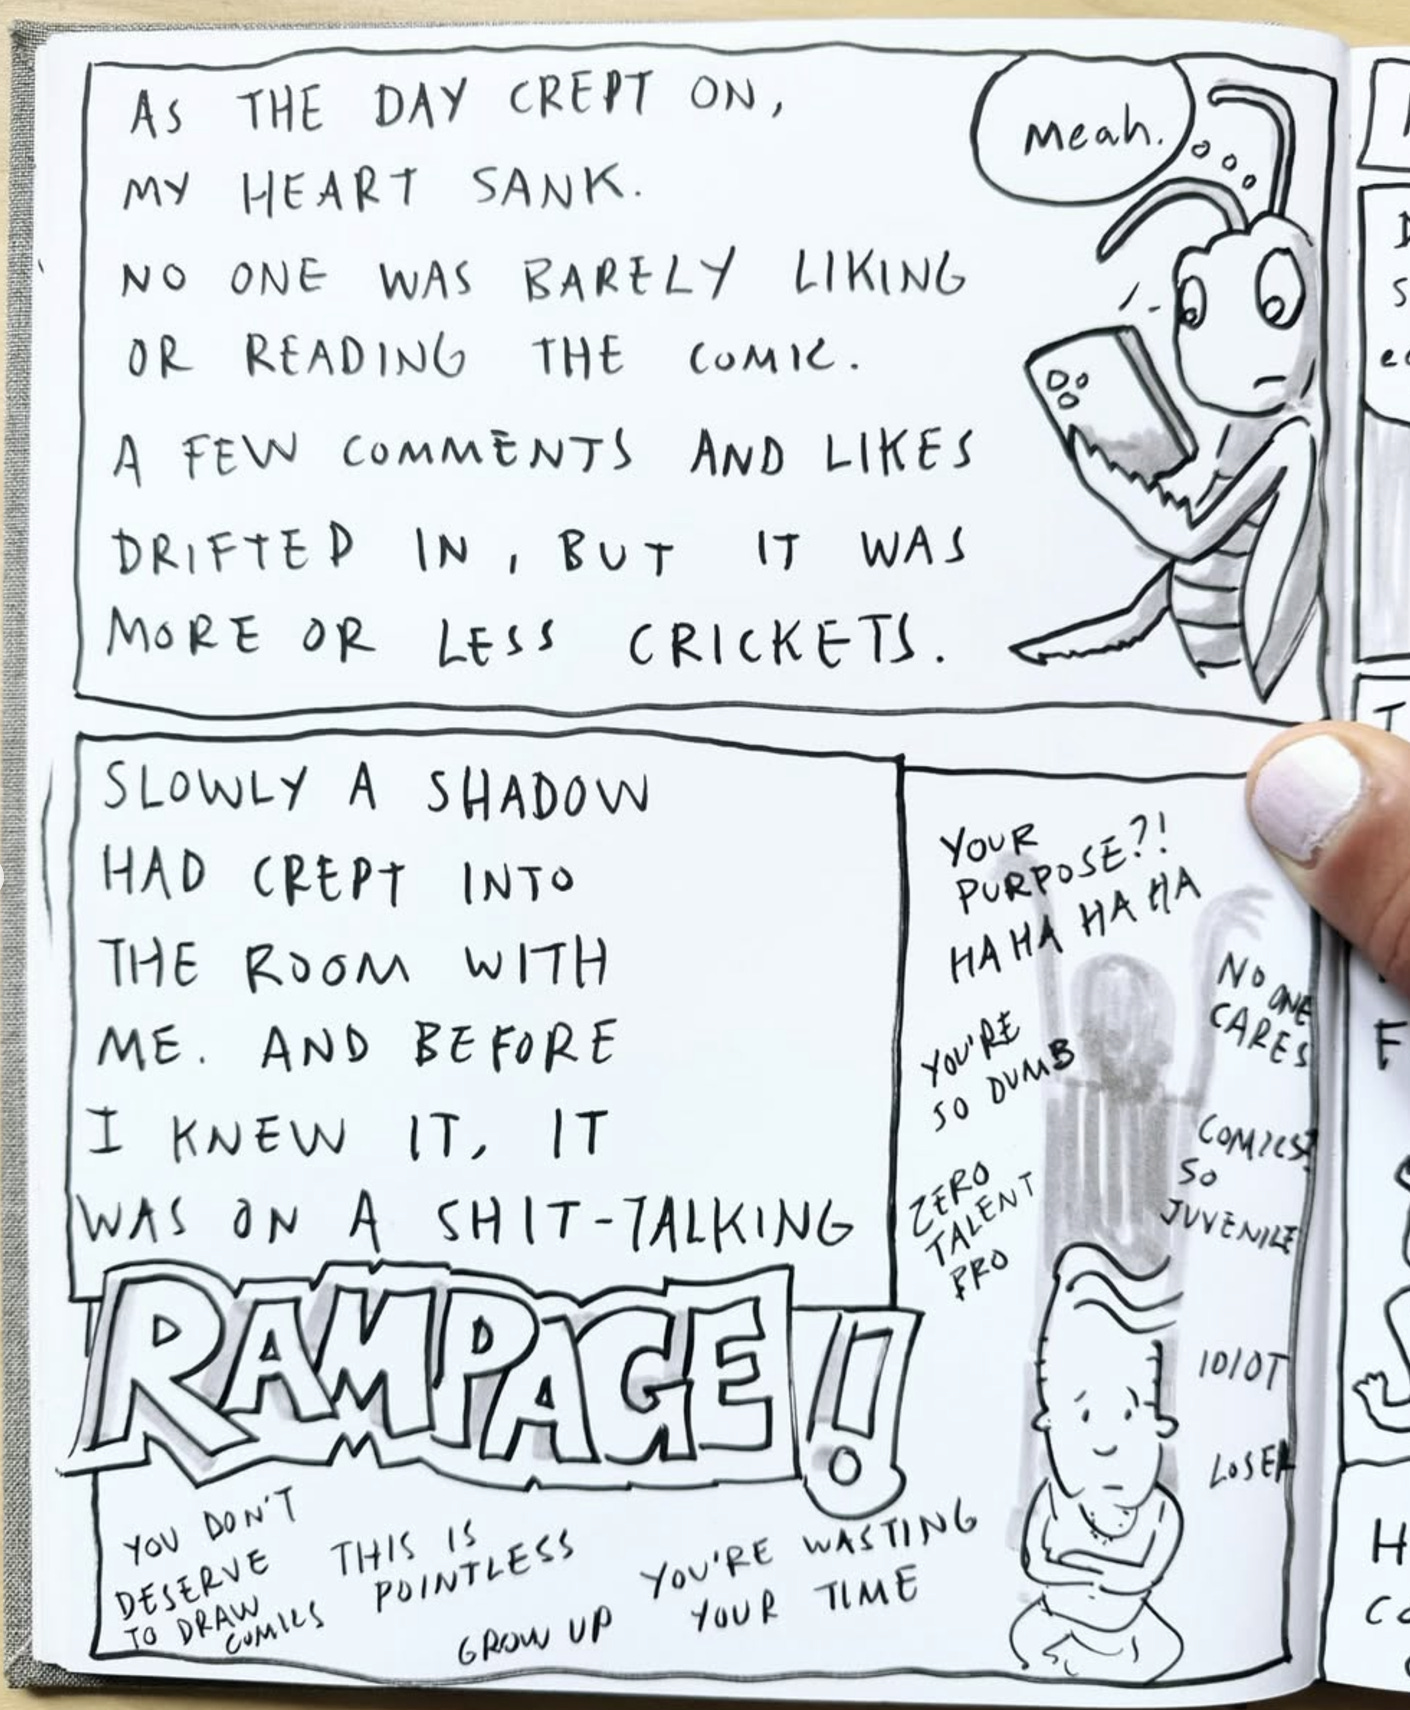 AS THE DAY CREPT ON,
MY HEART SANK.
NO ONE WAS BARELY LIKING
OR READING THE COMIC.
A FEW COMMENTS AND LIKES
DRIFTED IN, BUT IT WAS
MORE OR LESS CRICKETS.
meah.
SLOWLY A SHADOW
HAD CREPT INTO
THE ROOM WITH
ME. AND BEFORE
I KNEW IT, IT
WAS ON A SHIT-TALKING
RAMPAGE!
YOUR
PURPOSE?!
HA HA HA HA
NO ONE
CARES
YOU'RE
SO DUMB
COMICS?
SO
JUVENILE
ZERO
TALENT
BRO
IDIOT
LOSER
YOU DON'T
DESERVE
TO DRAW
COMICS
THIS IS
POINTLESS
GROW UP
YOU'RE WASTING
YOUR TIME